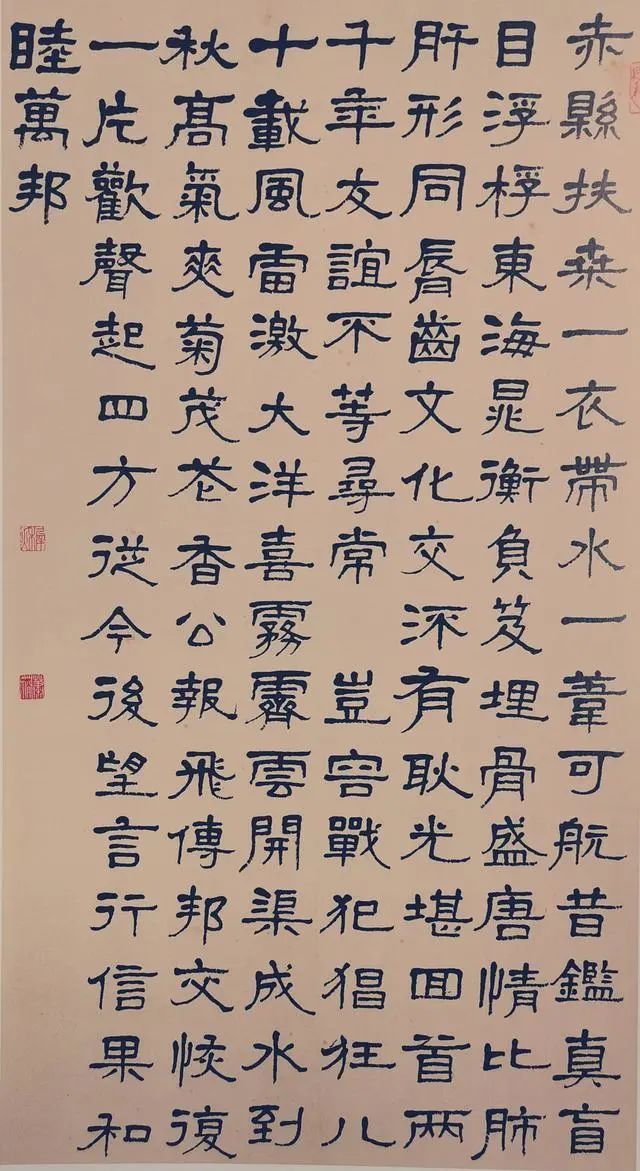 赤縣扶桒一衣帶水一葦可航昔鑑真盲
目浮桴東海晁衡負笈埋骨盛唐情比肺
肝形同脣齒文化交流有耿光堪回首兩
千年友誼不等尋常 豈容戰犯猖狂八
十載風雷激大洋喜霧霽雲開渠成水到
秋髙氣爽菊茂花香公報飛傳邦交恢復
一片歡聲起四方從今後望言行信果和
睦萬邦